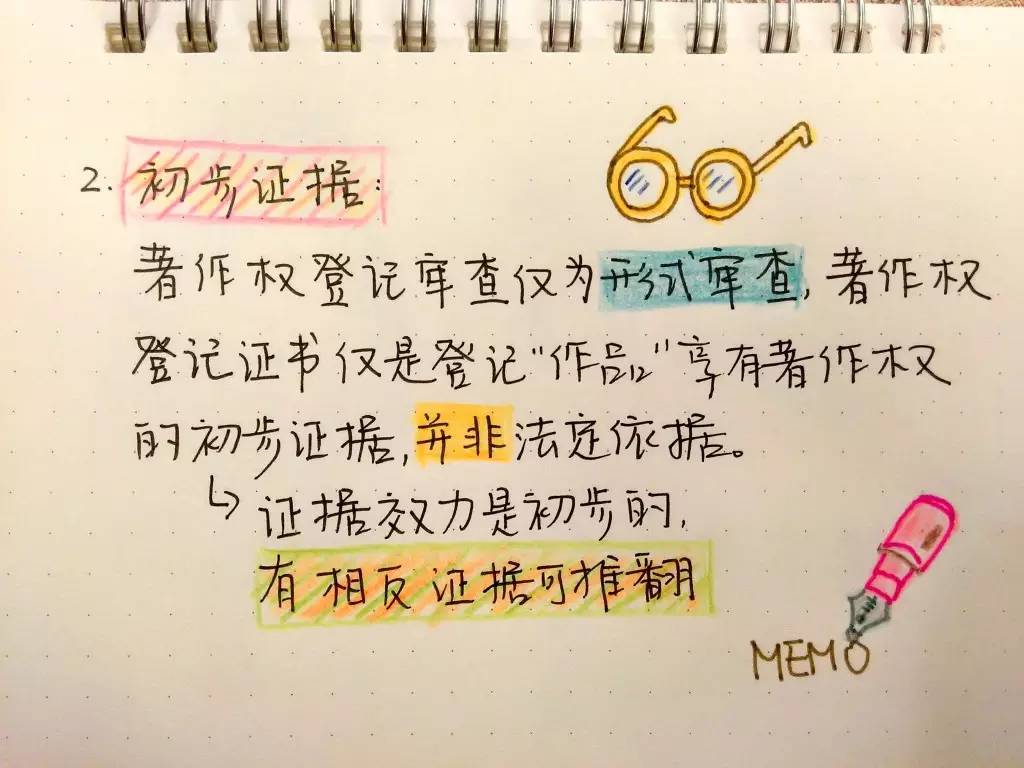 2. 初步证据:
著作权登记审查仅为形式审查, 著作权
登记证书仅是登记"作品"享有著作权
的初步证据, 并非法定依据。
↳ 证据效力是初步的,
有相反证据可推翻
MEMO